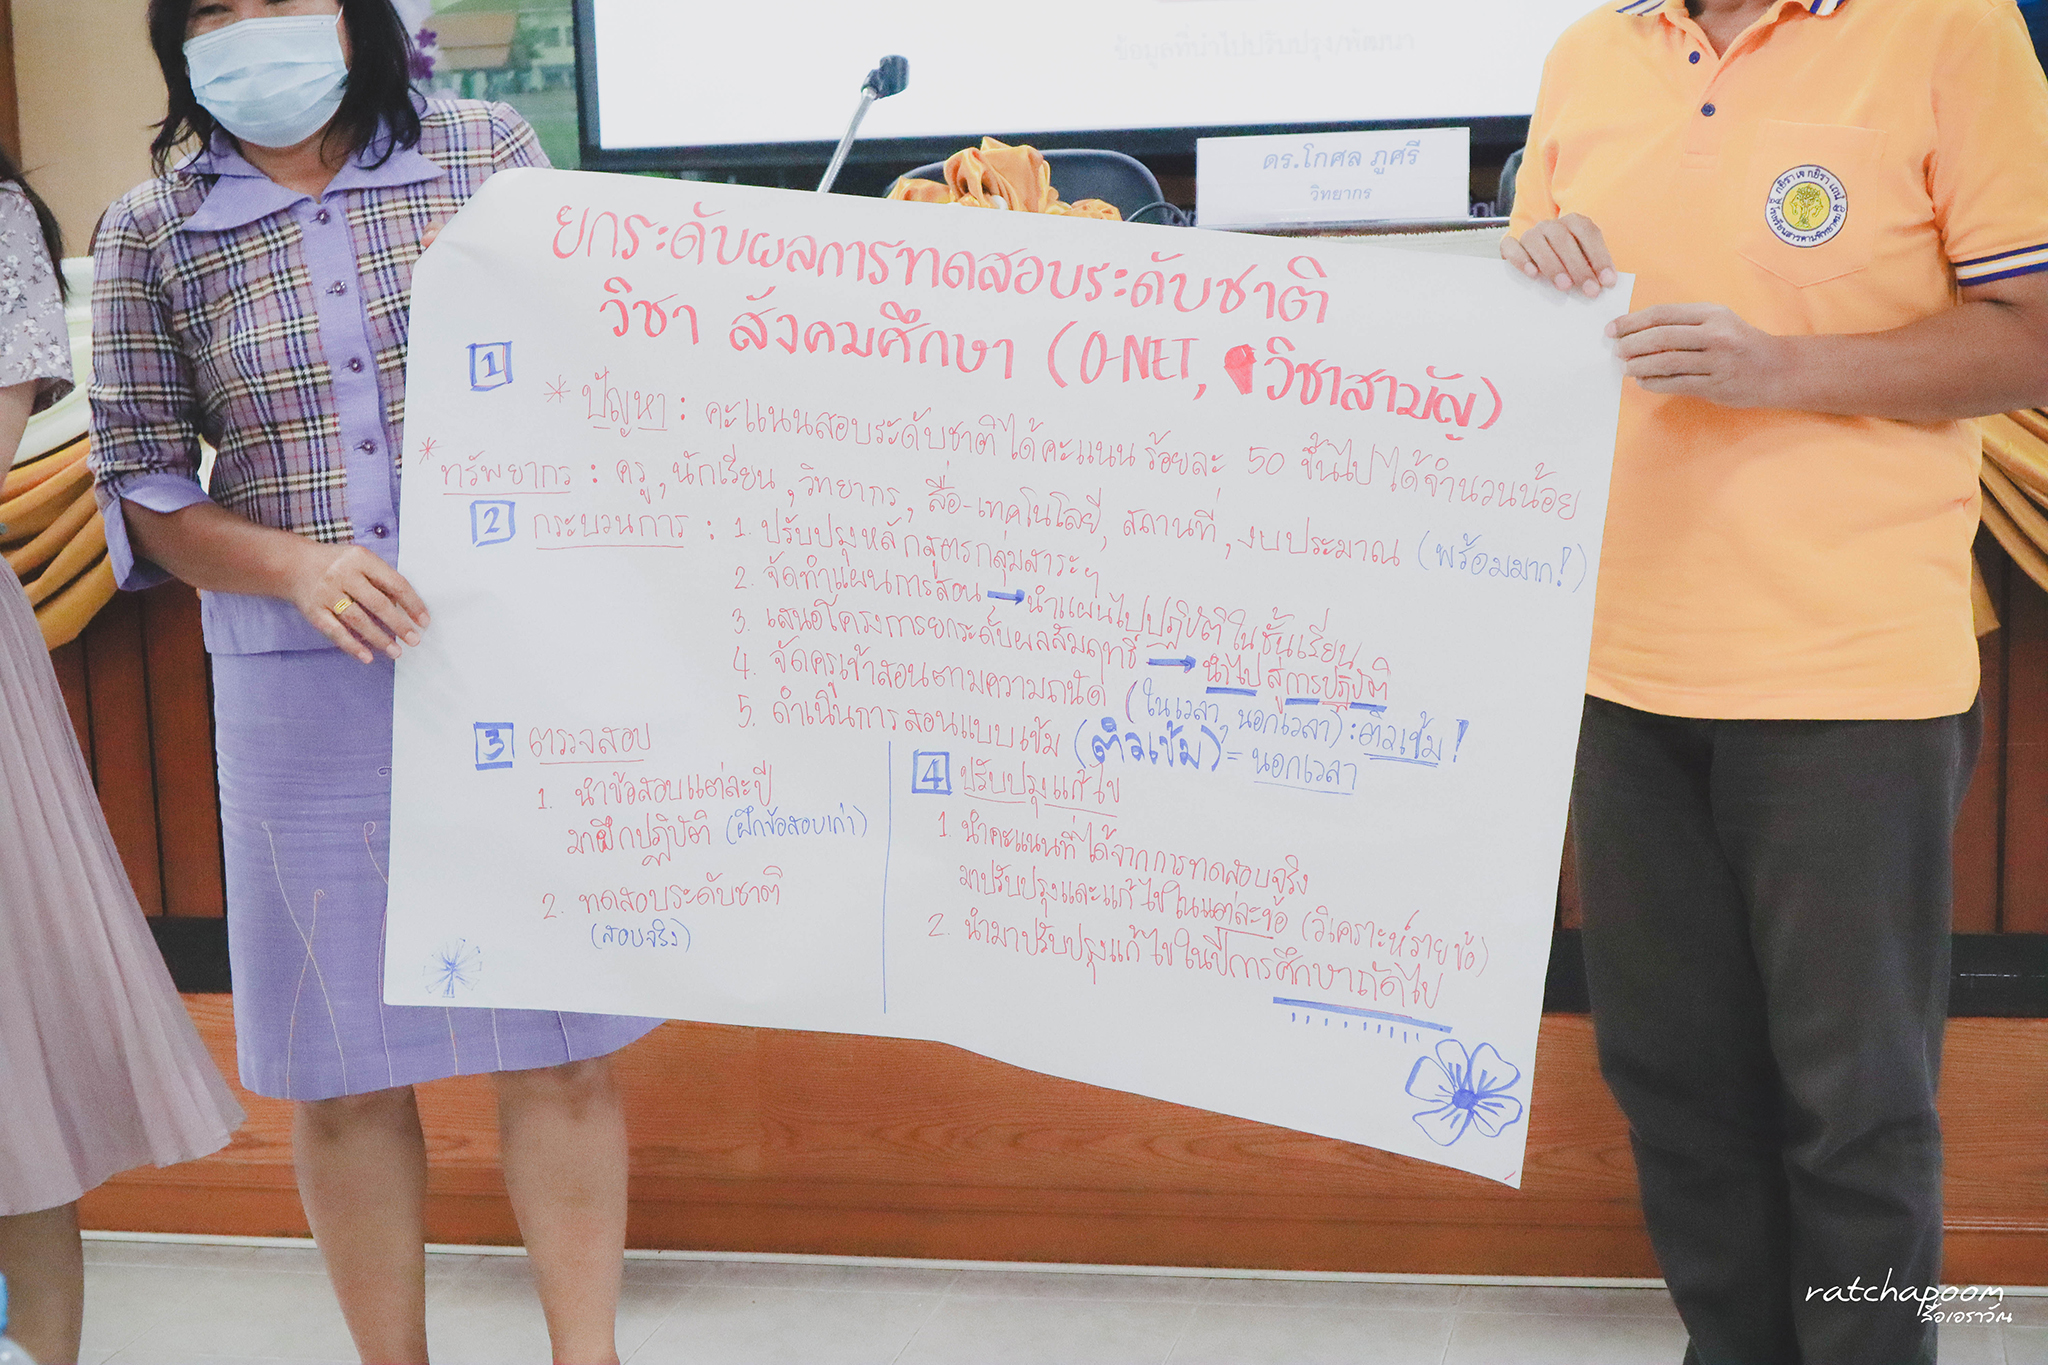 ข้อมูลที่นำไปปรับปรุง/พัฒนา
ดร.โกศล ภูศรี
วิทยากร
ยกระดับผลการทดสอบระดับชาติ
วิชา สังคมศึกษา (O-NET, วิชาสามัญ)
1
* ปัญหา : คะแนนสอบระดับชาติได้คะแนน ร้อยละ 50 ขึ้นไป ได้จำนวนน้อย
* ทรัพยากร : ครู, นักเรียน, วิทยากร, สื่อ-เทคโนโลยี, สถานที่, งบประมาณ (พร้อมมาก!)
2 กระบวนการ : 1. ปรับปรุงหลักสูตรกลุ่มสาระฯ
2. จัดทำแผนการสอน → นำแผนไปปฏิบัติในชั้นเรียน
3. เสนอโครงการยกระดับผลสัมฤทธิ์ → นำไปสู่การปฏิบัติ
4. จัดครูเข้าสอนตามความถนัด (ในเวลา, นอกเวลา) : ติวเข้ม!
5. ดำเนินการสอนแบบเข้ม (ติวเข้ม) = นอกเวลา
3 ตรวจสอบ
1. นำข้อสอบแต่ละปี
มาฝึกปฏิบัติ (ฝึกข้อสอบเก่า)
2. ทดสอบระดับชาติ
(สอบจริง)
4 ปรับปรุงแก้ไข
1 นำคะแนนที่ได้จากการทดสอบจริง
มาปรับปรุงและแก้ไขในแต่ละข้อ (วิเคราะห์รายข้อ)
2. นำมาปรับปรุงแก้ไขในปีการศึกษาถัดไป
ratchapoom
สื่อเอราวัณ